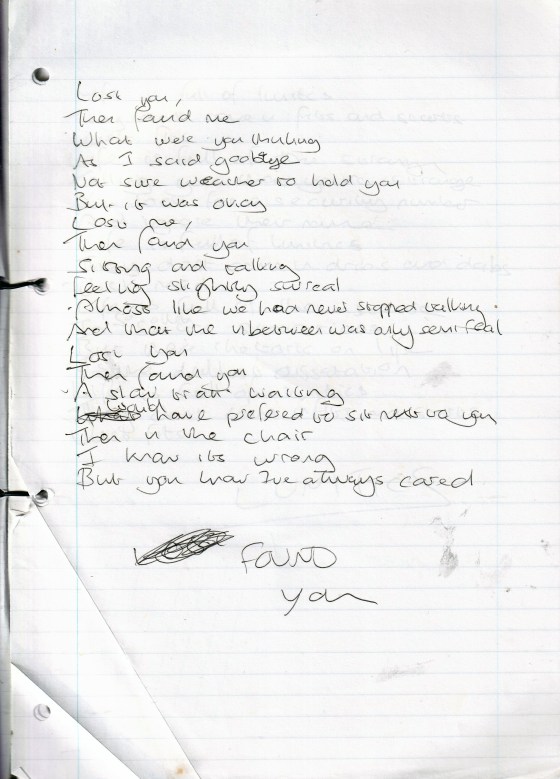 Lost you,
Then found me
What were you thinking
As I said goodbye
Not sure weather to hold you
But it was okay
Lost me,
Then found you
Sitting and talking
Feeling slightly surreal
Almost like we had never stopped talking.
And that the inbetween was only semi real
Lost you
Then found you
A slow train waiting
would have prefered to sit next to you
Then in the chair
I know its wrong
But you know I've always cared
FOUND
you